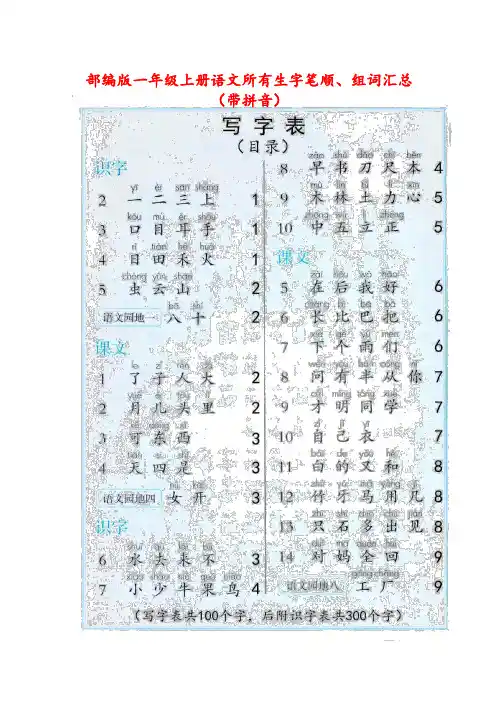 部编版一年级上册语文所有生字笔顺、组词汇总
（带拼音）
写字表
（目录）
识字
yī èr sān shàng
2 一 二 三 上 1
kǒu mù ěr shǒu
3 口 目 耳 手 1
rì tián hé huǒ
4 日 田 禾 火 1
chóng yún shān
5 虫 云 山 2
bā shí
语文园地一 八 十 2
课文
1 了 子 人 大 2
2 月 儿 头 里 2
3 可 东 西 3
4 天 四 是 3
语文园地四 女 开 3
识字
6 水 去 来 不 3
7 小 少 牛 果 鸟 4
zǎo shū dāo chǐ běn
8 早 书 刀 尺 本 4
9 木 林 土 力 心 5
zhōng wǔ lì zhèng
10 中 五 立 正 5
课文
zài hòu wǒ hǎo
5 在 后 我 好 6
cháng bǐ bā bǎ
6 长 比 巴 把 6
7 下 个 雨 们 6
8 问 有 半 从 你 7
cái míng tóng xué
9 才 明 同 学 7
zì jǐ yī
10 自 己 衣 7
bái de yòu hé
11 白 的 又 和 8
12 竹 牙 马 用 几 8
13 只 石 多 出 见 8
14 对 妈 全 回 9
gōng chǎng
语文园地八 工 厂 9
（写字表共100个字，后附识字表共300个字）